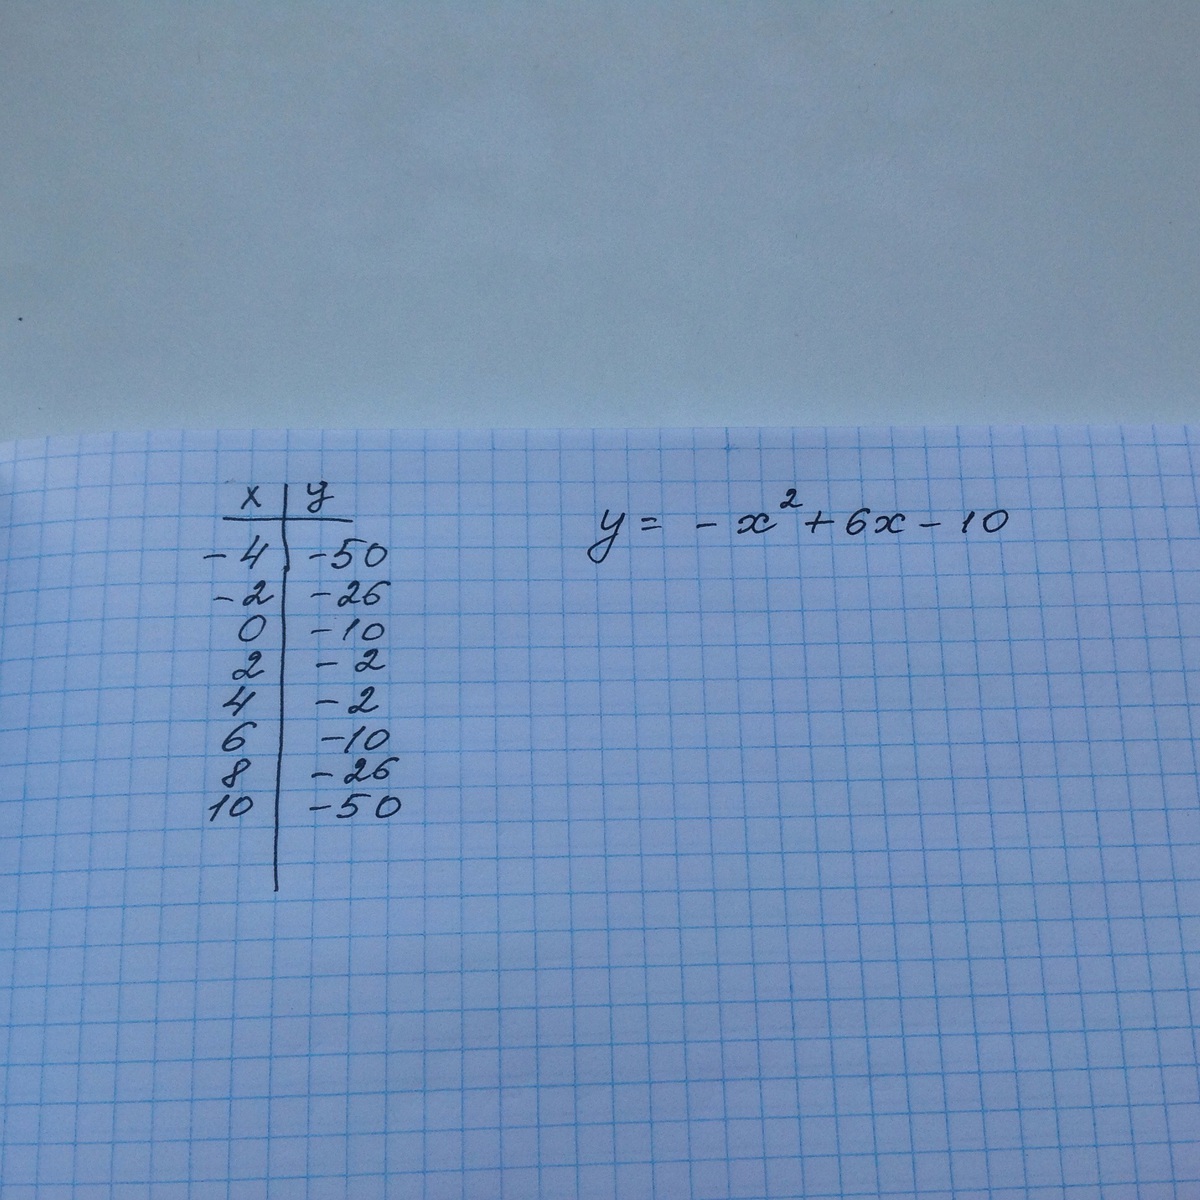 x | y
-4 | -50
-2 | -26
0 | -10
2 | -2
4 | -2
6 | -10
8 | -26
10 | -50
y = -x² + 6x - 10